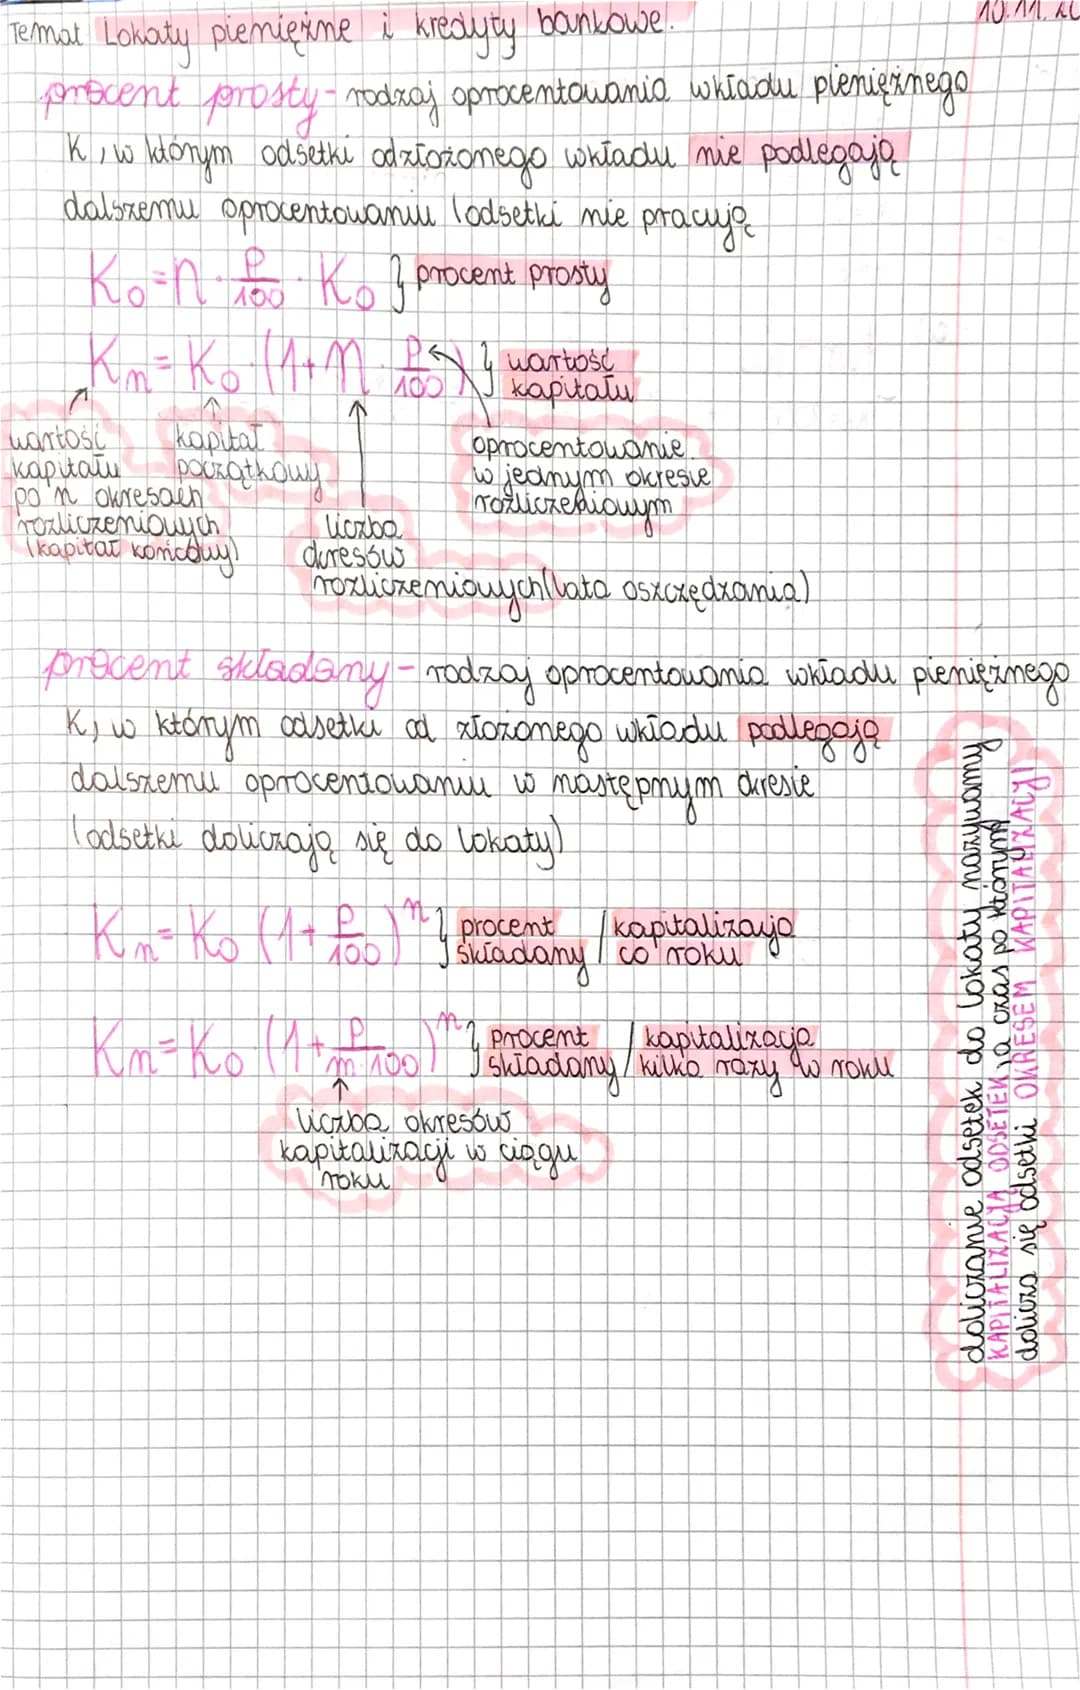 Temat Lokaty pieniężne i kredyty bankowe.
10.11.
procent prosty - rodzaj oprocentowania wkładu pieniężnego
K, w którym odsetki odzłożonego wkładu nie podlegają
dalszemu oprocentowaniu (odsetki nie pracują
K₀ = n · p/100 · K₀ } procent prosty
Kn = K₀ · (1 + n · p/100) } wartość
kapitału
wartość
kapitału
po n okresach
rozliczeniowych
(kapitał końcowy)
kapitał
początkowy
liczba
okresów
rozliczeniowych (lata oszczędzania)
oprocentowanie
w jednym okresie
rozliczeniowym
procent składany - rodzaj oprocentowania wkładu pieniężnego
K, w którym odsetki od złożonego wkładu podlegają
dalszemu oprocentowaniu w następnym okresie
(odsetki doliczają się do lokaty)
Kn = K₀ (1 + p/100)ⁿ } procent składany / kapitalizacja co roku
Kn = K₀ · (1 + p/m·100)ⁿ } procent składany / kapitalizacja kilka razy w roku
liczba okresów
kapitalizacji w ciągu
roku
doliczanie odsetek do lokaty nazywamy
KAPITALIZACJĄ ODSETEK, a czas po którym
dolicza się odsetki OKRESEM KAPITALIZACJI!